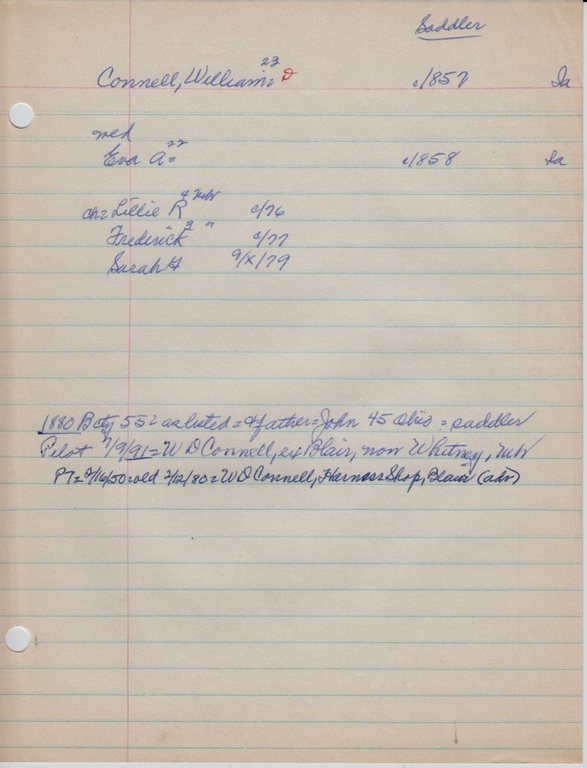 Saddler
Connell, William = 23 D c/857 Ia
med
Eva A = 22 c/858 Ia
ch = Lillie R 4 Nebr c/76
Frederick 3 " c/77
Sarah 9/x/79
1880 Bcty 552 as listed = & father = John 45 Ohio = saddler
Pilot 7/9/91 = W D Connell, ex Blair, now Whitney, Nebr
2/12/80 = W D Connell, Harness Shop, Blair (adv)